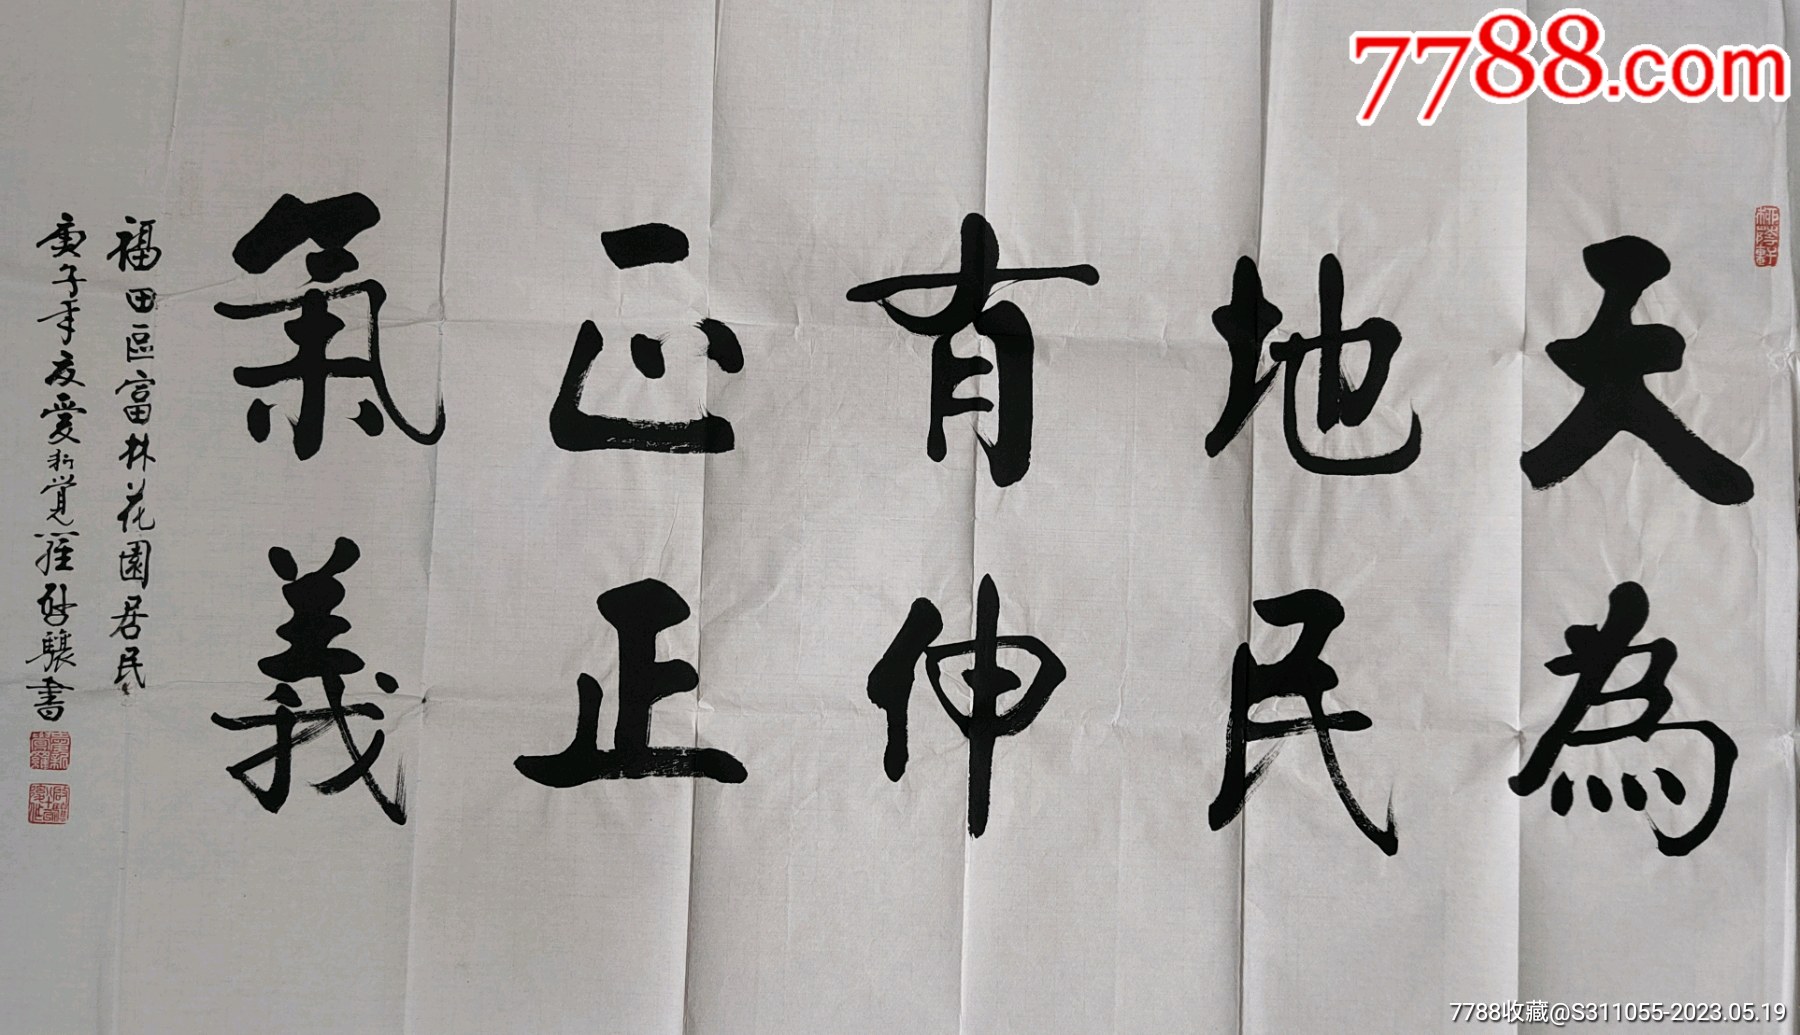 7788.com
天地有正氣
為民伸正義
福田區富林花園居民
庚子年夏愛新覺羅啓驤書
7788收藏@S311055-2023.05.19